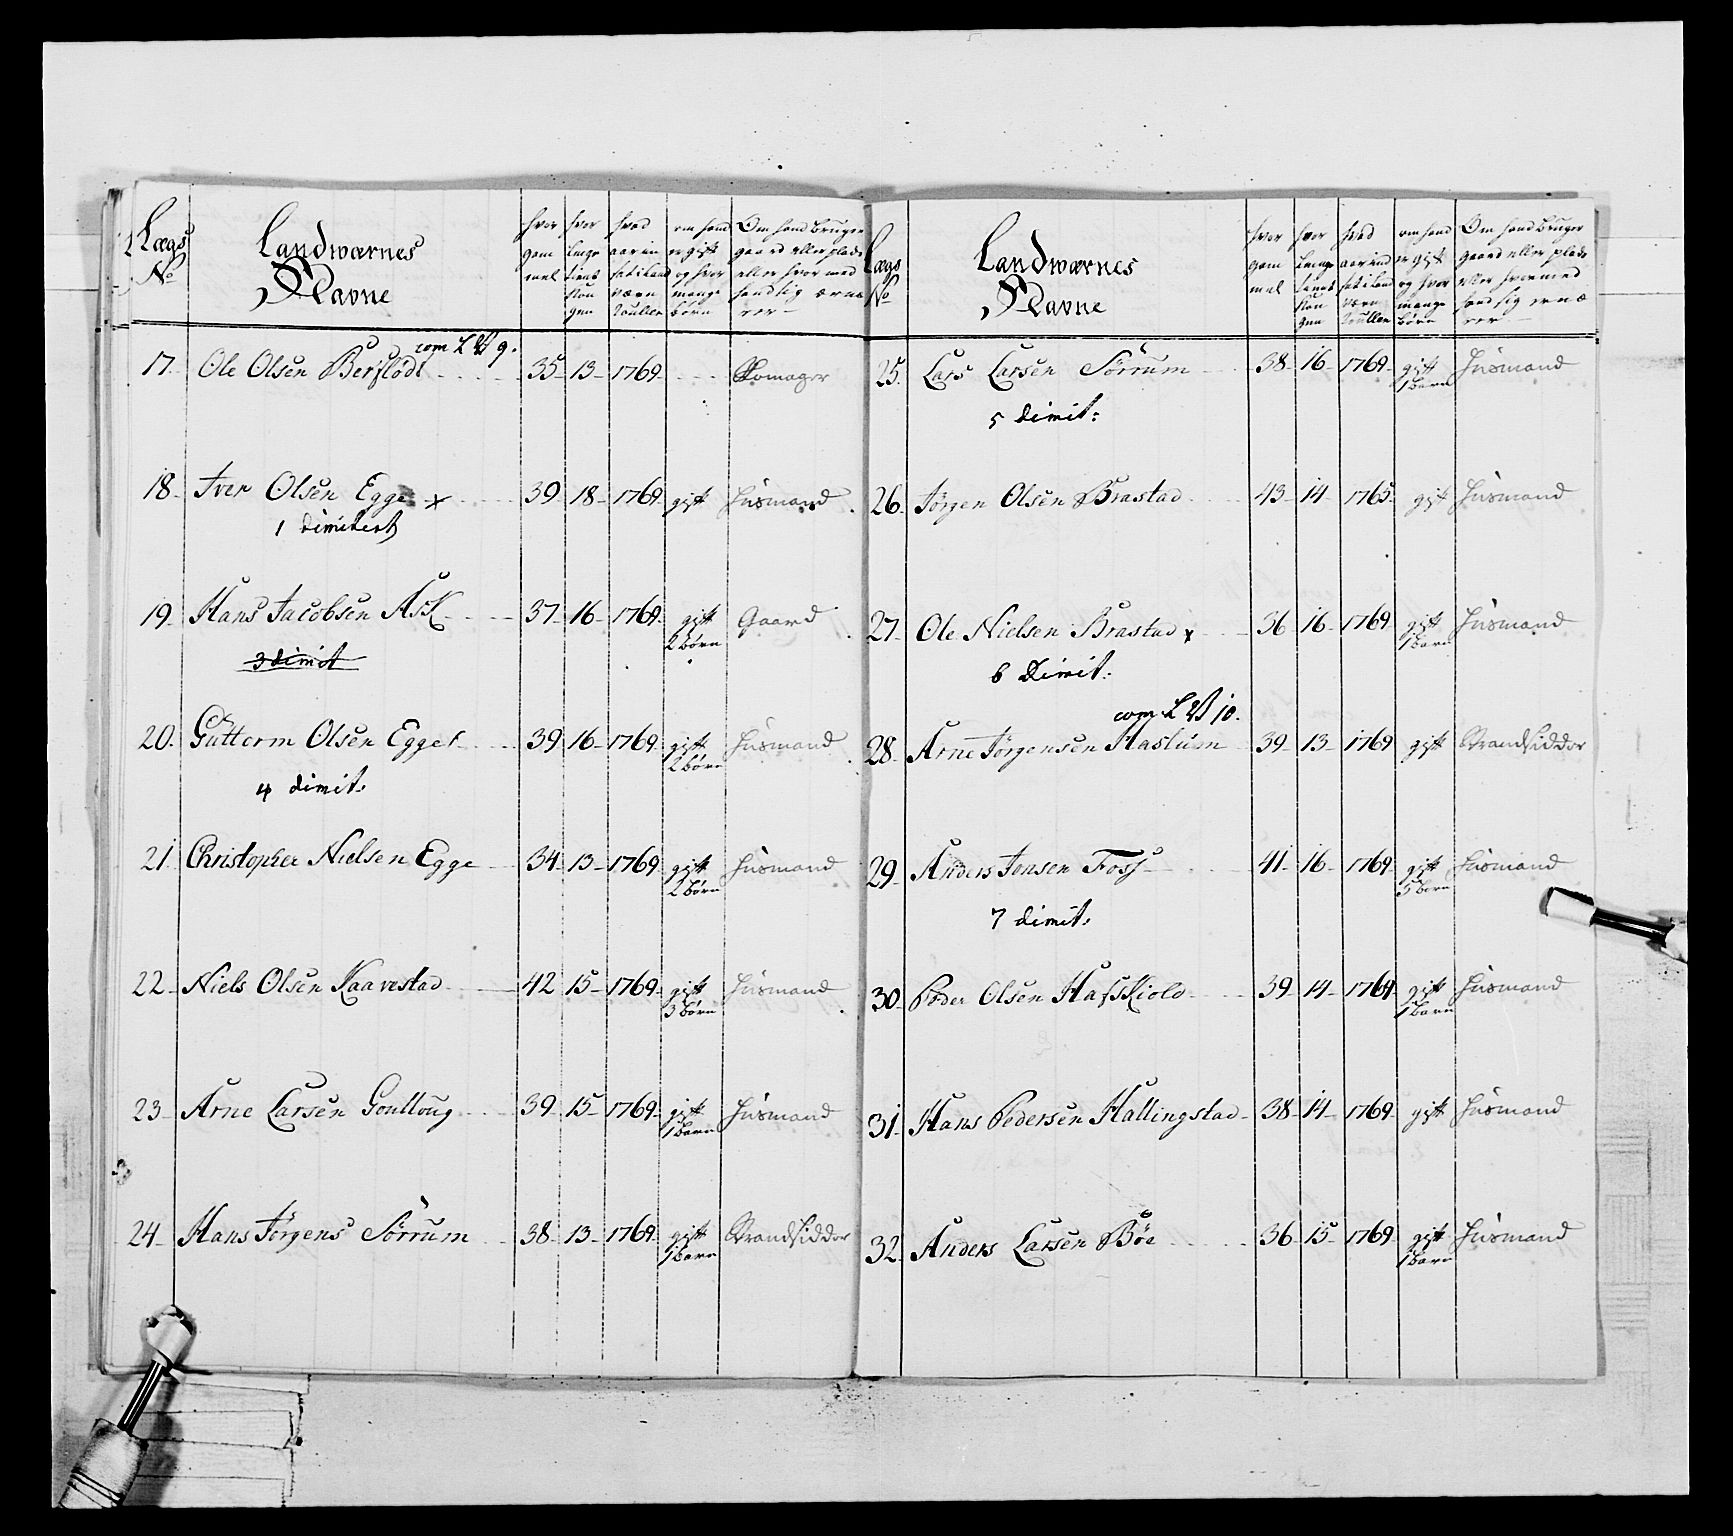 Lægs
No
Landværnes
Navne
hvor
gam
mel
hvor
længe
tient
Kon
gen
hvad
aar ind
sat i Land
værn
Roullen
om hand
er gift
og hvor
mange
børn
Om hand bruger
gaard eller plads
eller hvor med
hand sig ernæ
rer
com L W 9.
17. Ole Olsen Berflödt 35 13 1769 Skomager
18. Iver Olsen Egge x 39 18 1769 gift Huusmand
1 dimitert
19. Hans Jacobsen Ask 37 16 1769 gift Gaard
2 börn
3 dimit
20. Guttorm Olsen Egget 39 16 1769 gift Huusmand
2 börn
4 dimit:
21. Christopher Nielsen Egge 34 13 1769 gift Huusmand
2 börn
22. Niels Olsen Kaarestad 42 15 1769 gift Huusmand
3 börn
23. Arne Larsen Goulloug 39 15 1769 gift Huusmand
1 barn
24. Hans Jörgens Sörrum 38 13 1769 gift Strandsidder
1 barn
Lægs
No
Landværnes
Navne
hvor
gam
mel
hvor
længe
tient
Kon
gen
hvad
aar ind
sat i Land
værn
Roullen
om hand
er gift
og hvor
mange
børn
Om hand bruger
gaard eller plads
eller hvormed
hand sig ernæ
rer
25. Lars Larsen Sörrum 38 16 1769 gift Huusmand
1 barn
5 dimit:
26. Jörgen Olsen Brastad 43 14 1765 gift Huusmand
27. Ole Nielsen Brastad x 36 16 1769 gift Huusmand
1 barn
6 Dimit:
com L W 10.
28. Arne Jörgensen Haslum 39 13 1769 gift Strandsidder
29. Anders Jonsen Foss 41 16 1769 gift Huusmand
5 börn
7 dimit:
30. Peder Olsen Hafskiold 39 14 1769 gift Huusmand
1 barn
31. Hans Pedersen Hallingstad 38 14 1769 gift Huusmand
32. Anders Larsen Böe 36 15 1769 gift Huusmand
1 barn